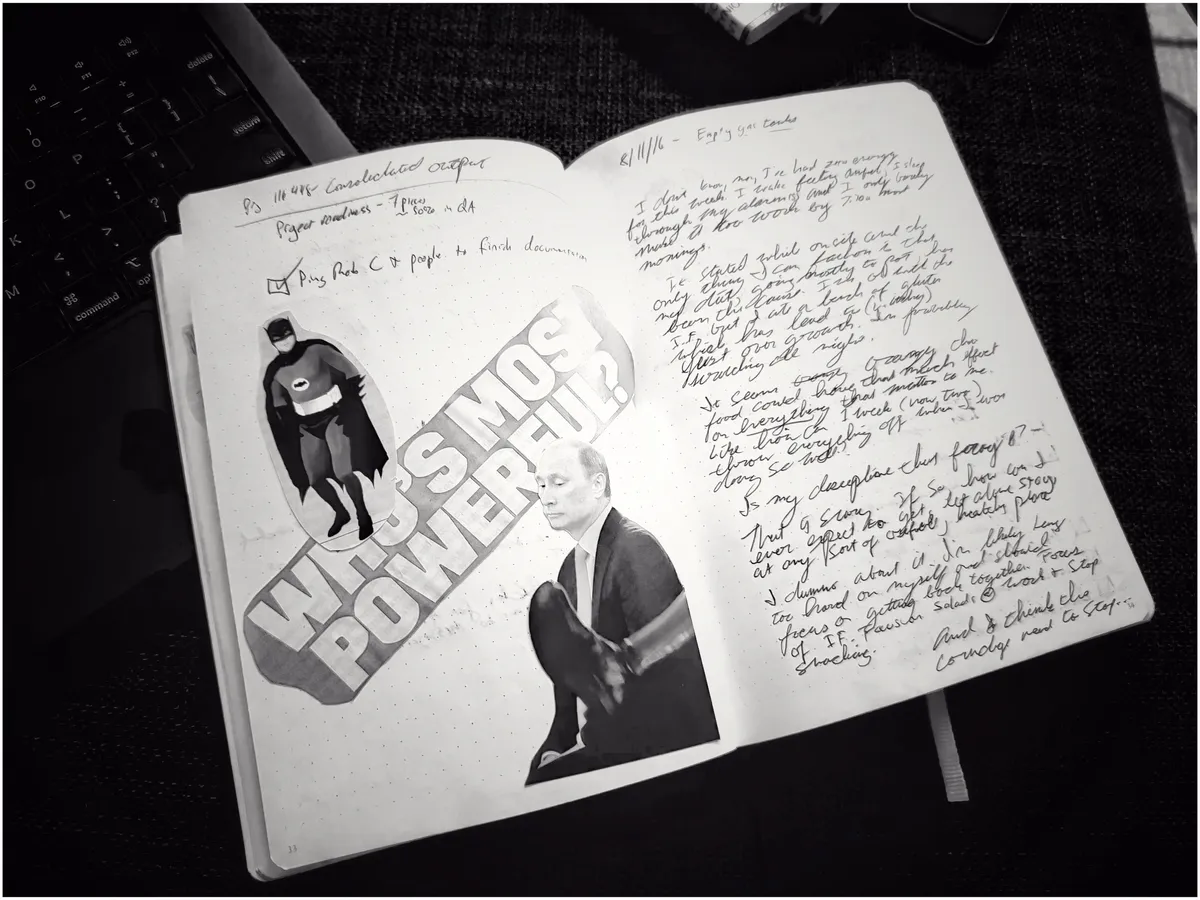 Consolidated output
Project madness - 7 pieces
in QA
Ping Rob C & people to finish documentation
WHO'S MOST
POWERFUL?
33
8/11/16 - Empty gas tanks
I don't know, man, I've had zero energy
for this week. I wake feeling awful, I sleep
through my alarms and I only barely
make it to work by 7:00 most
mornings.
It started while onsite and the
only thing I can fathom is that
my diet, going mostly to pot has
been the cause. I've
I.F. but I ate a bunch of gluten
which has lead to (y, ally)
over growth. I'm probably
all night.
It seems crazy the
food could have that much effect
on everything that matter to me.
Like how can 1 week (now two)
throw everything off when I was
doing so well?
Is my discipline that
That is scary. If so how can I
ever expect to get, let alone stay
at any sort of healthy place
I dunno about it. I'm likely being
too hard on myself and should
focus on getting back together. Focus
of I.F. Salads @ work & stop
snacking.
and I think the
need to stop...
delete
return
shift
command
F10
F11
F12
O
P
K
L
M